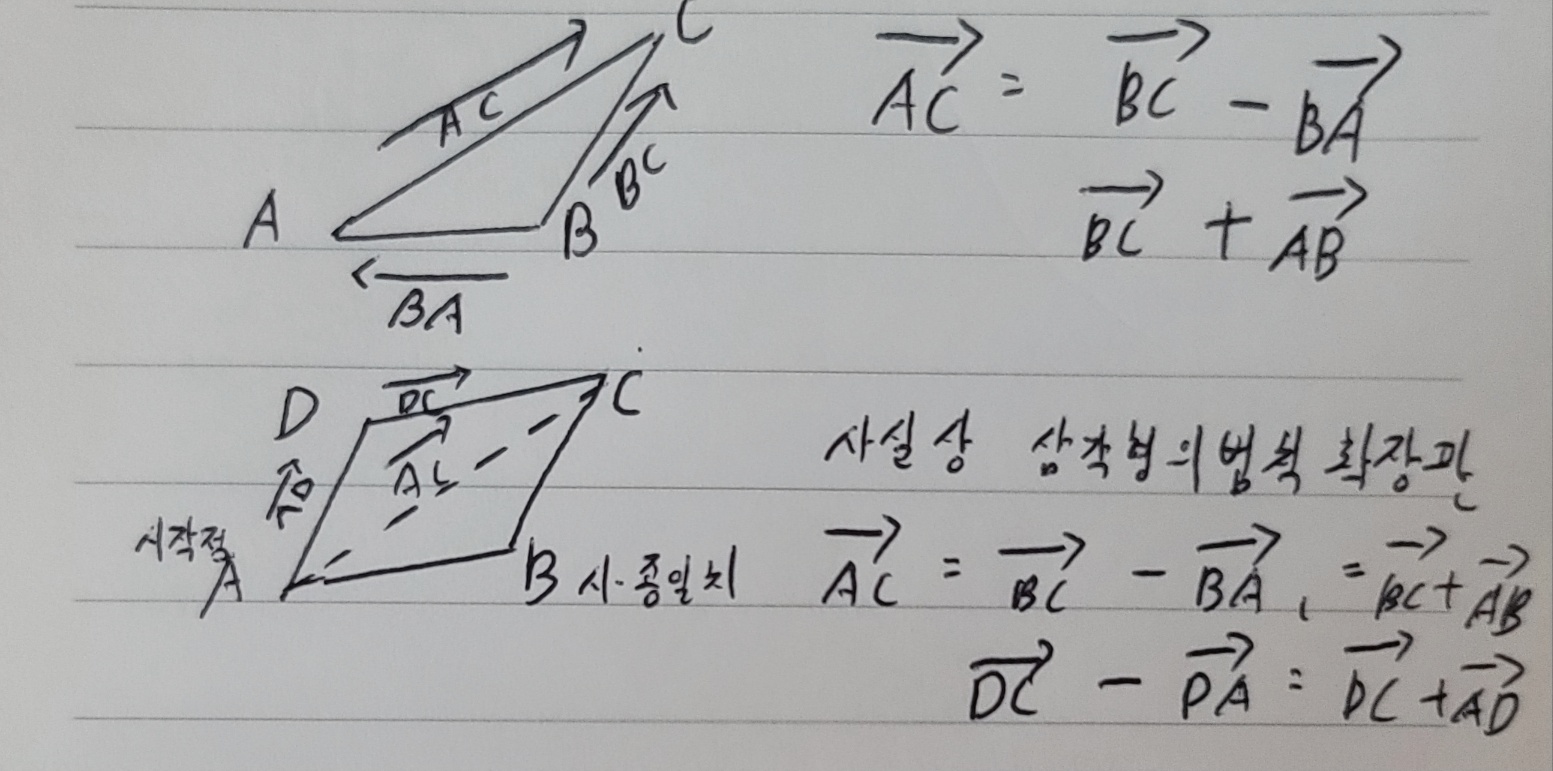 C
AC
A
B
BC
BA
AC = BC - BA
BC + AB
D
DC
C
AD
AC
시작점
A
B 시·종일치
사실상 삼각형의 법칙 확장판
AC = BC - BA, = BC + AB
DC - DA = DC + AD